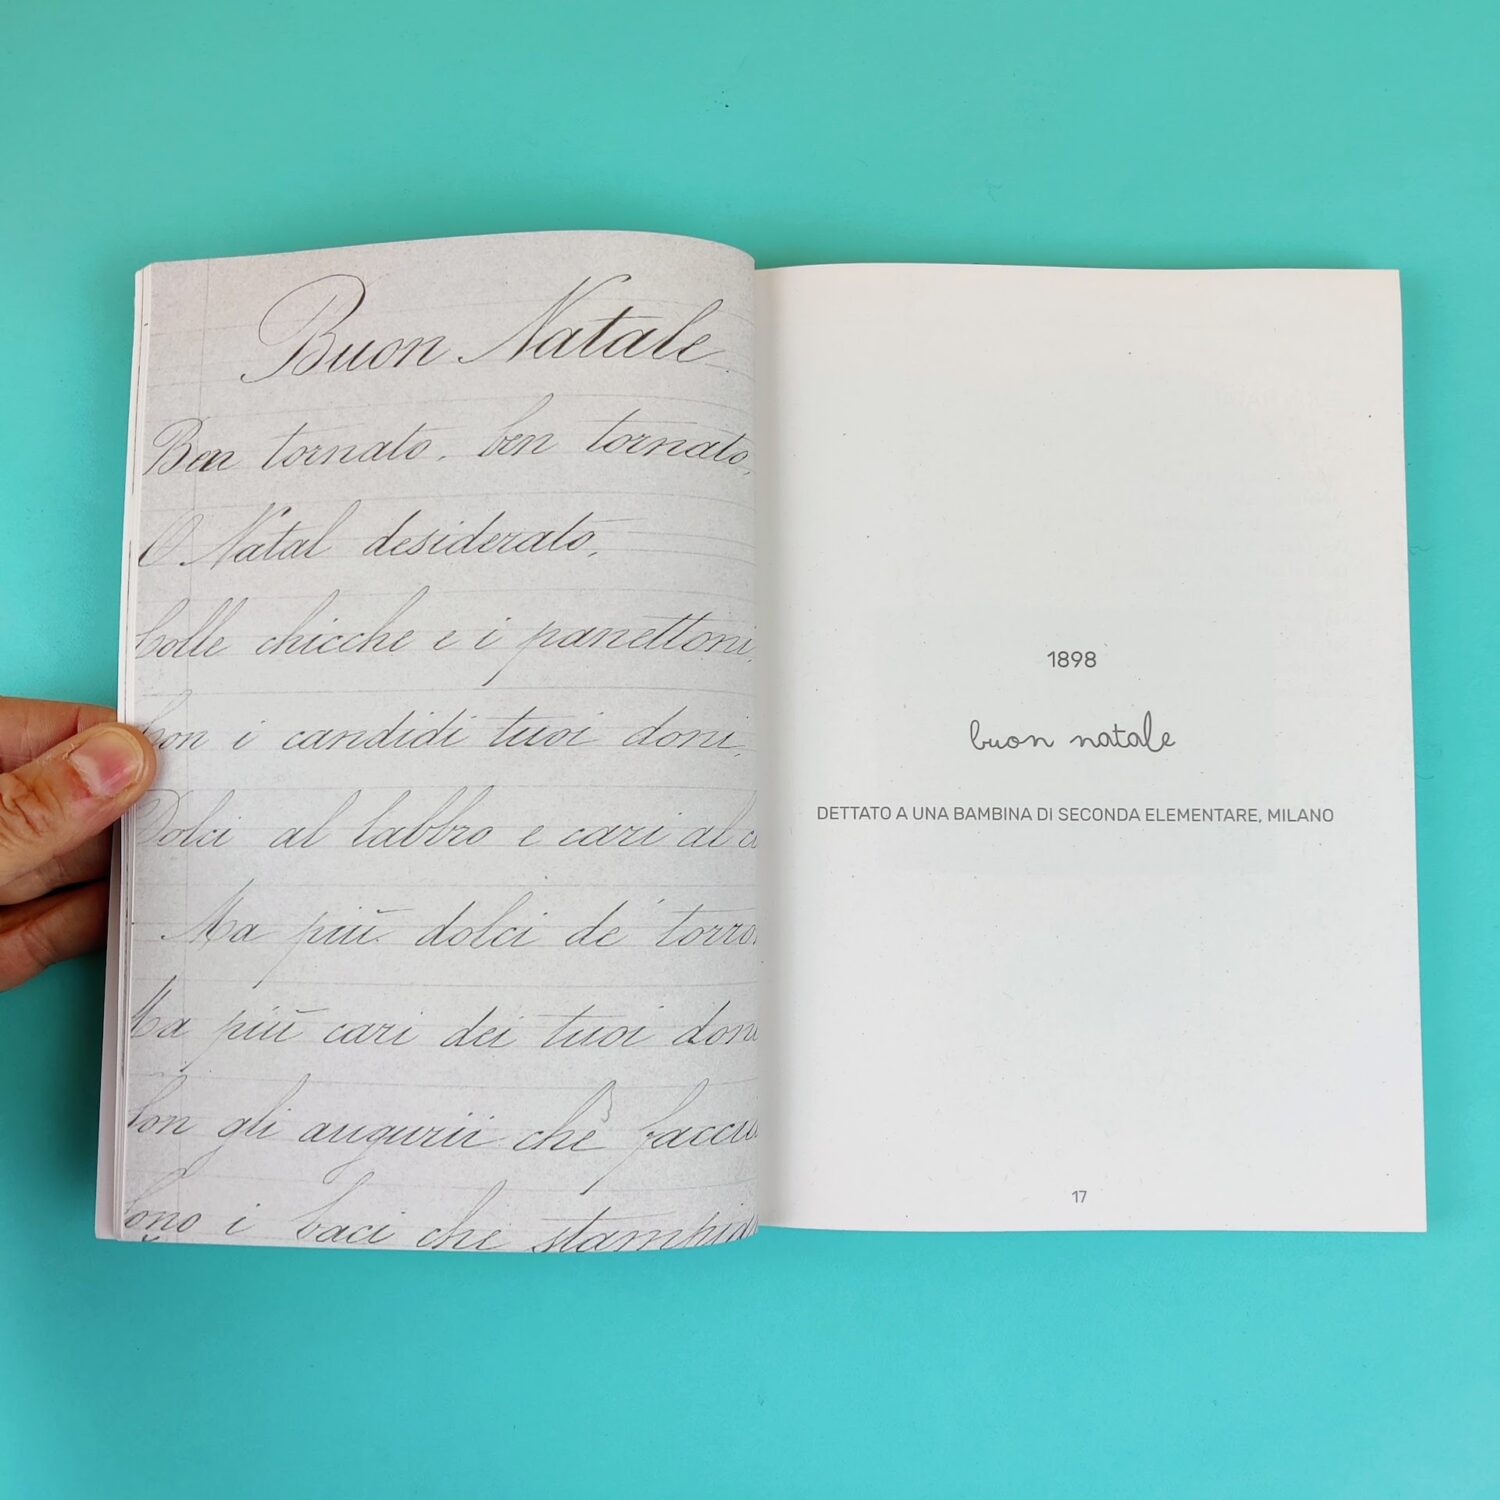 Buon Natale
Ben tornato, ben tornato,
O Natal desiderato,
Colle chicche e i panettoni,
Con i candidi tuoi doni,
Dolci al labbro e cari al
Ma più dolci de'
Ma più cari dei tuoi doni
Con gli augurii chè
Sono i baci che
1898
buon natale
DETTATO A UNA BAMBINA DI SECONDA ELEMENTARE, MILANO
17